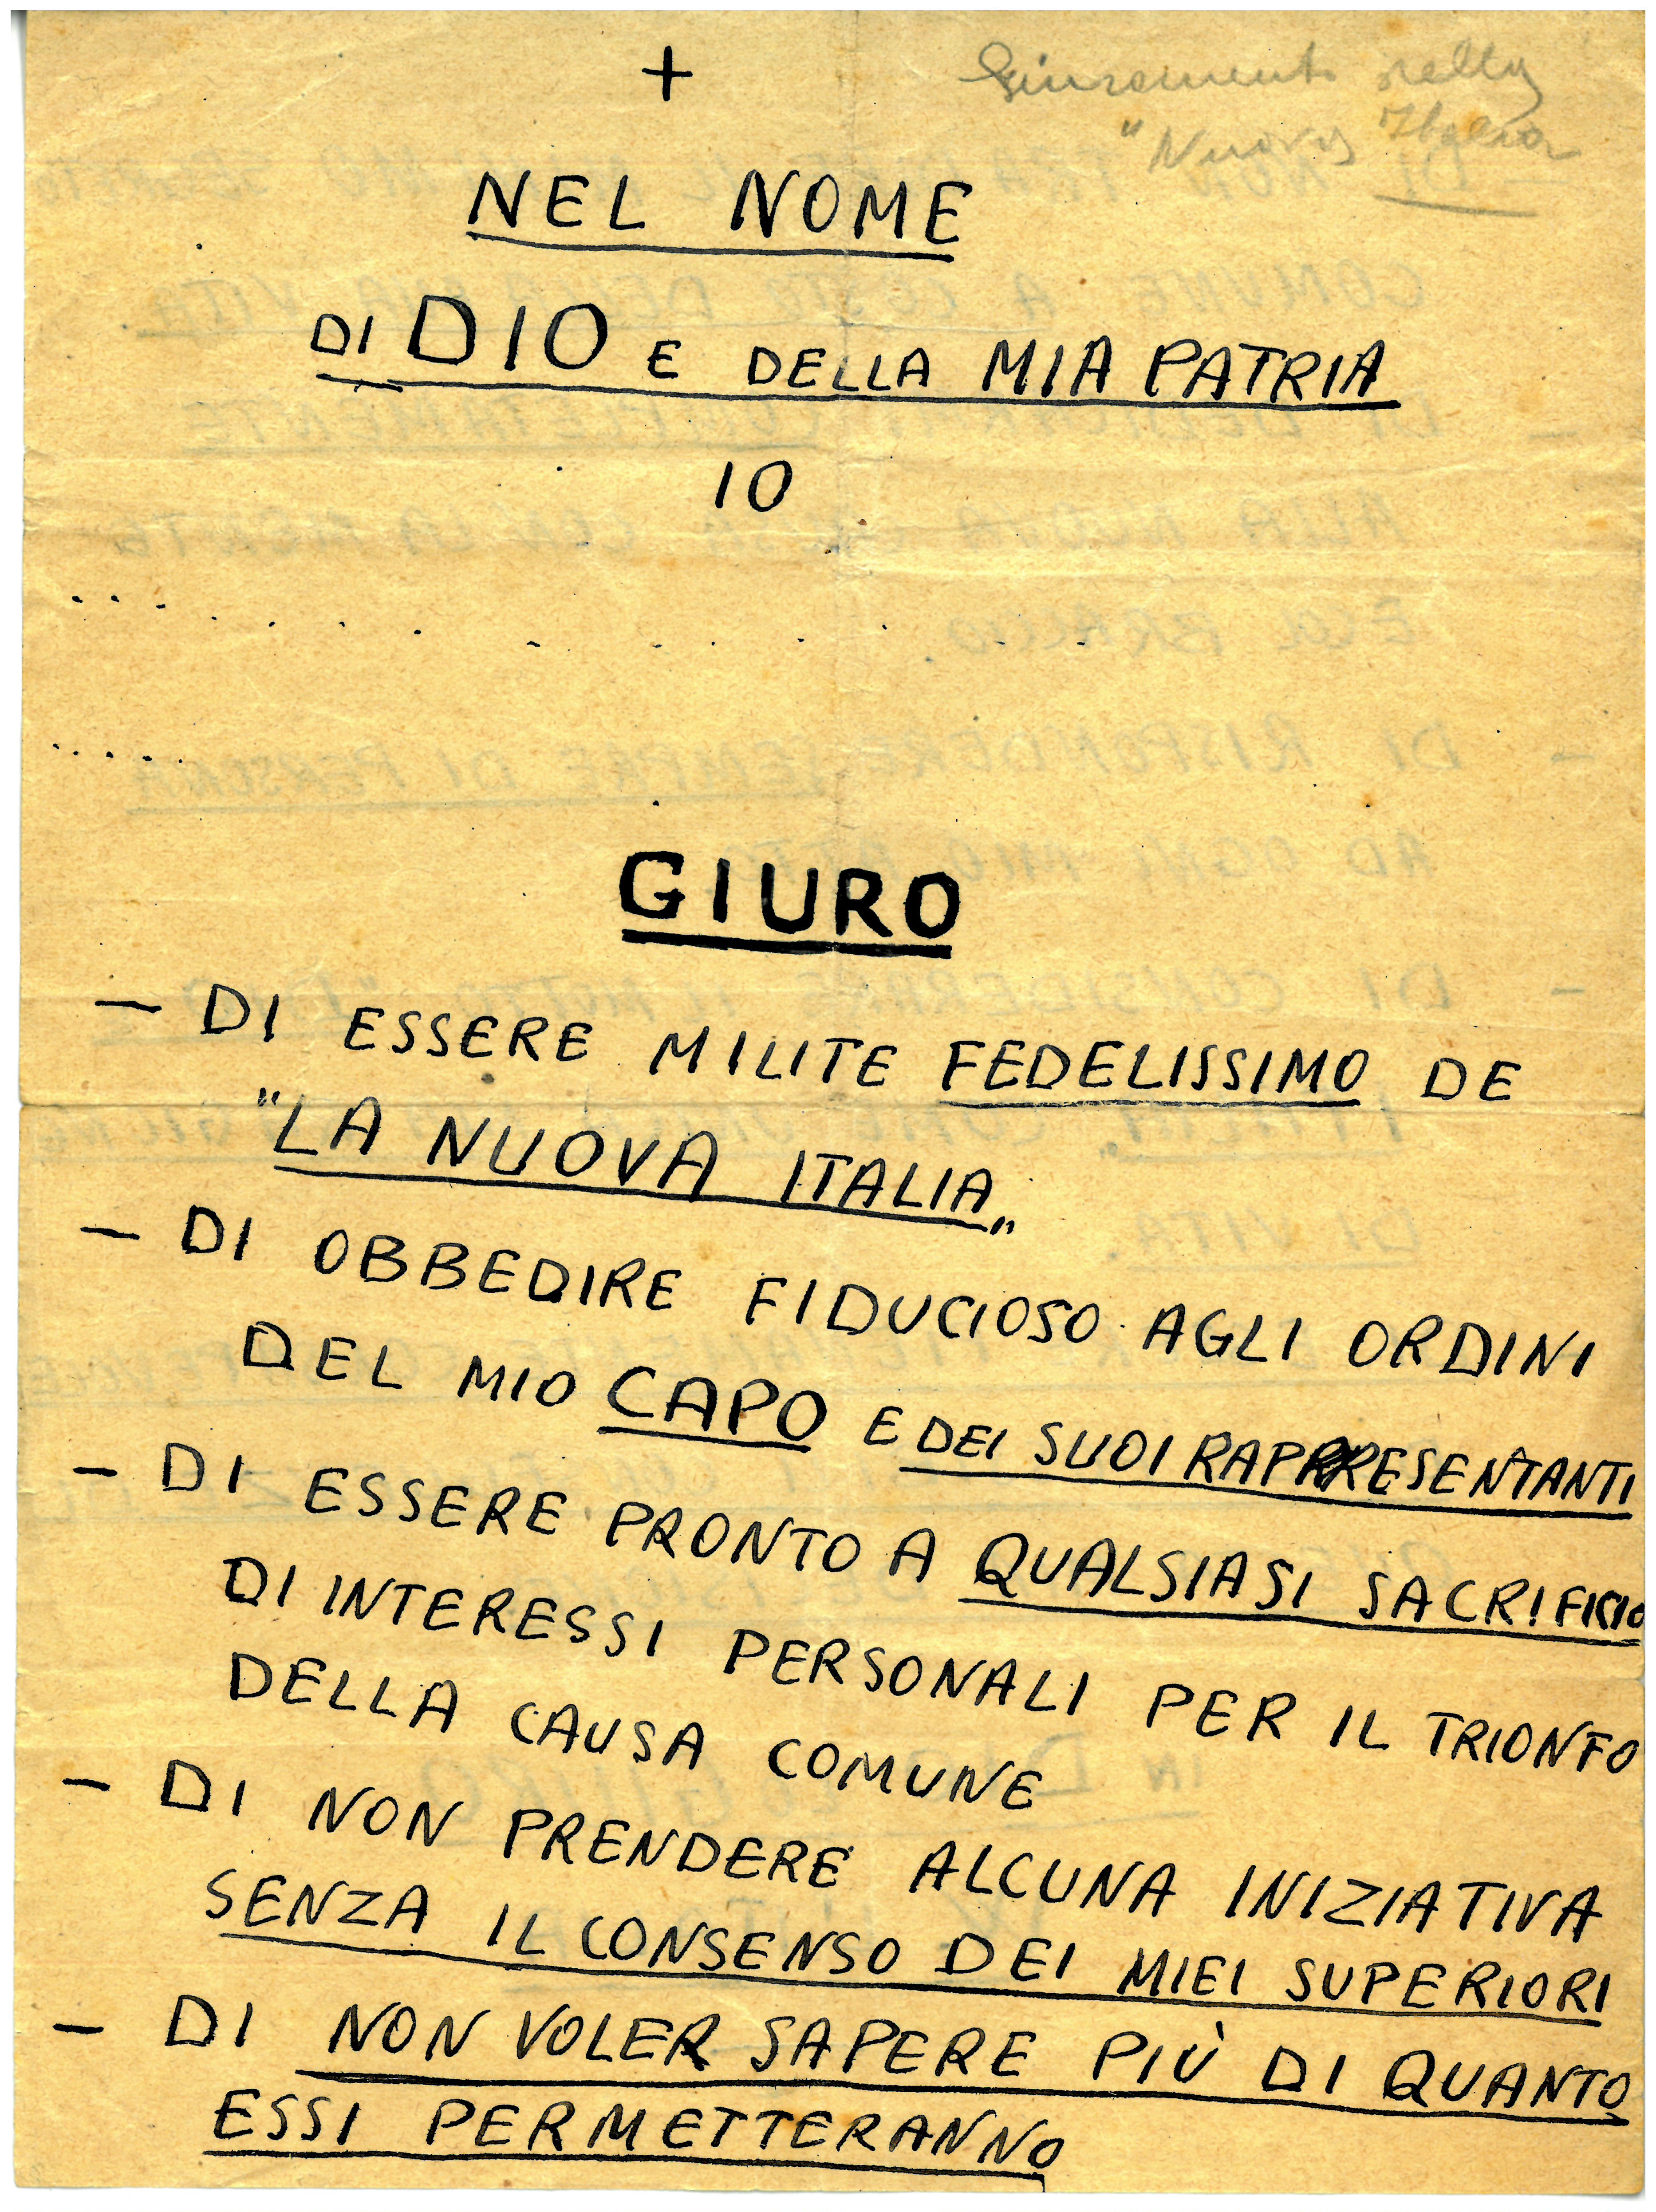 +
Giuramento della
"Nuova Italia
NEL NOME
DI DIO E DELLA MIA PATRIA
IO
. . . . . . . . . . . . .
. . . . . .
GIURO
— DI ESSERE MILITE FEDELISSIMO DE
"LA NUOVA ITALIA„
— DI OBBEDIRE FIDUCIOSO AGLI ORDINI
DEL MIO CAPO E DEI SUOI RAPPRESENTANTI
— DI ESSERE PRONTO A QUALSIASI SACRIFICIO
DI INTERESSI PERSONALI PER IL TRIONFO
DELLA CAUSA COMUNE
— DI NON PRENDERE ALCUNA INIZIATIVA
SENZA IL CONSENSO DEI MIEI SUPERIORI
— DI NON VOLER SAPERE PIÙ DI QUANTO
ESSI PERMETTERANNO